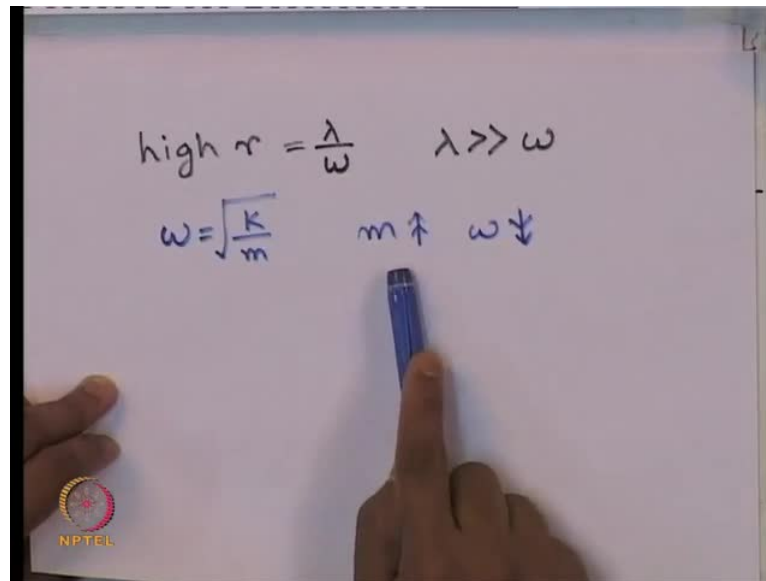 high r = λ/ω λ >> ω
ω = √(K/m) m ↑ ω ↓
NPTEL